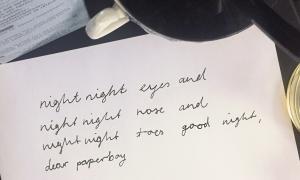 night night eyes and
night night nose and
night night toes good night,
dear paperboy